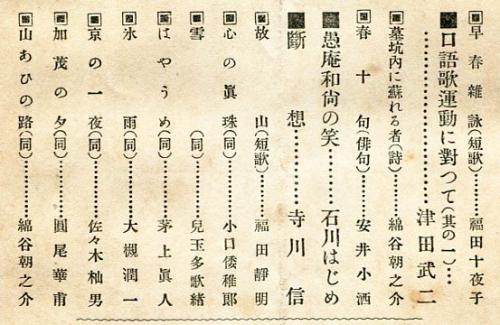 早春雑詠(短歌)………福田十夜子
口語歌運動に對つて(其の一)…
………………津田武二
墓坑内に蘇れる者(詩)……綿谷朝之介
春十句(俳句)………安井小洒
愚庵和尙の笑……石川はじめ
斷想………寺川信
故山(短歌)………福田靜明
心の眞珠(同)………小口倭稚郎
雪(同)………兒玉多歌緒
はやうめ(同)………茅上眞人
氷雨(同)………大槻潤一
京の一夜(同)………佐々木柚男
加茂の夕(同)………圓尾華甫
山あひの路(同)………綿谷朝之介